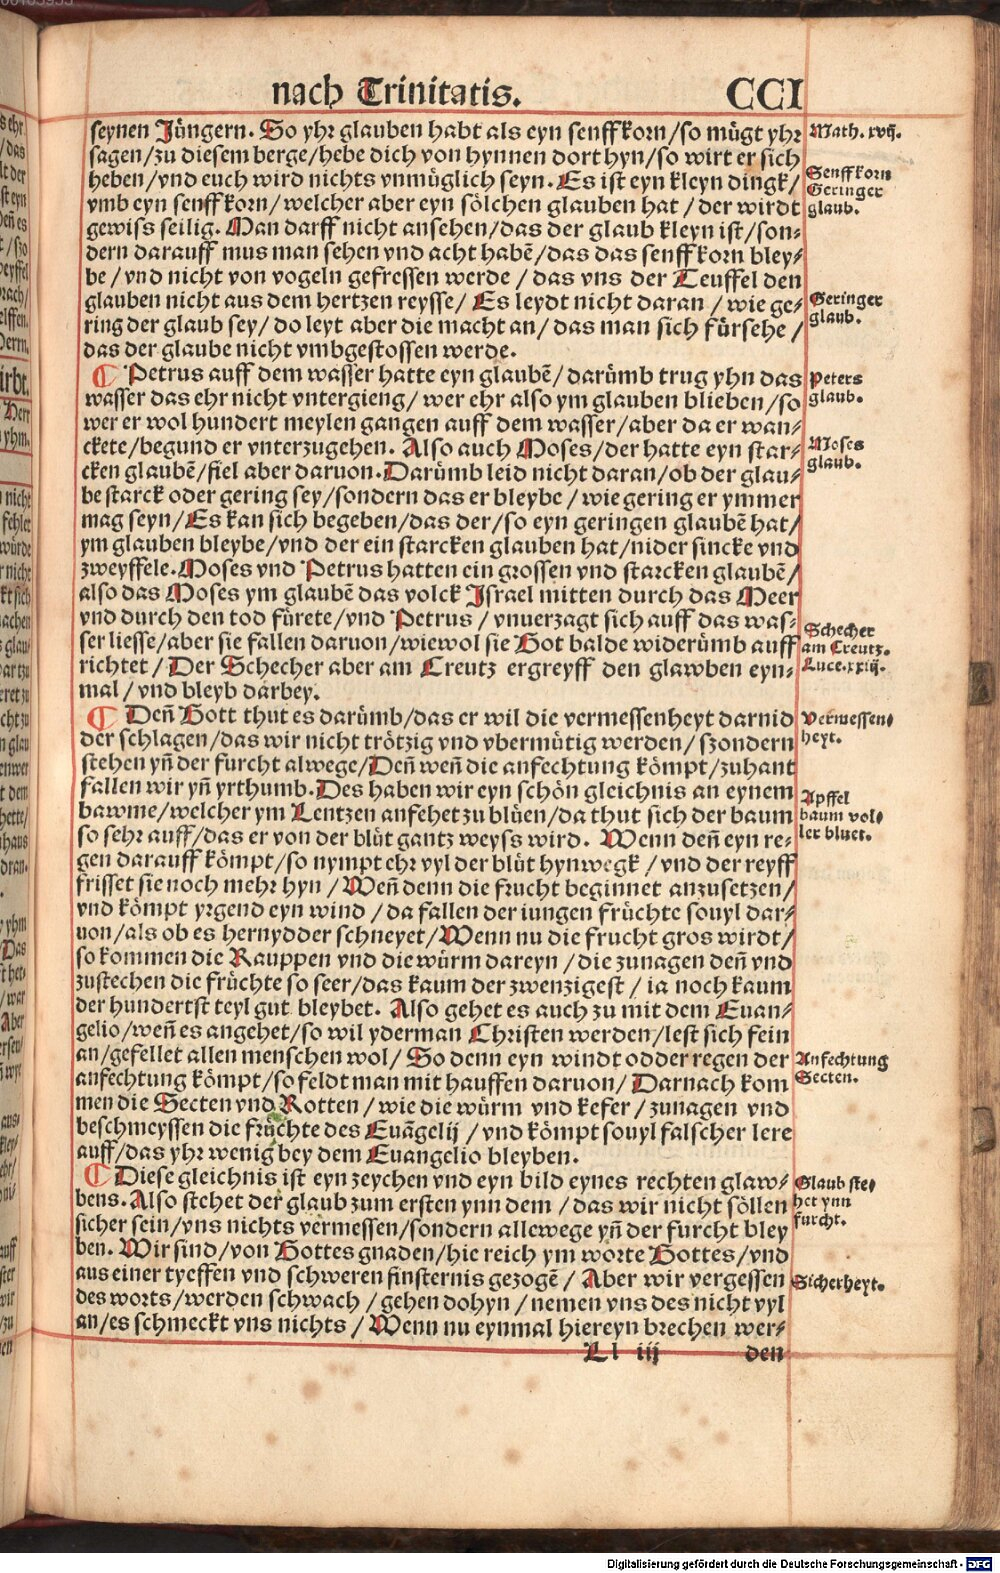 nach Trinitatis. CCI
seynen Jüngern. So yhr glauben habt als eyn senffkorn/so mügt yhr
sagen/zu diesem berge/hebe dich von hynnen dorthyn/so wirt er sich
heben/vnd euch wird nichts vnmüglich seyn. Es ist eyn kleyn dingk/
vmb eyn senffkorn/welcher aber eyn sölchen glauben hat/der wirdt
gewiss seilig. Man darff nicht ansehen/das der glaub kleyn ist/son⸗
dern darauff mus man sehen vnd acht habē/das das senffkorn bley⸗
be/vnd nicht von vogeln gefressen werde/das vns der Teuffel den
glauben nicht aus dem hertzen reysse/Es leydt nicht daran/wie ge⸗
ring der glaub sey/do leyt aber die macht an/das man sich fürsehe/
das der glaube nicht vmbgestossen werde.
Math. xvij.
Senffkorn
Geringer
glaub.
Geringer
glaub.
¶ Petrus auff dem wasser hatte eyn glaubē/darümb trug yhn das
wasser das ehr nicht vntergieng/wer ehr also ym glauben blieben/so
wer er wol hundert meylen gangen auff dem wasser/aber da er wan⸗
ckete/begund er vnterzugehen. Also auch Moses/der hatte eyn star⸗
cken glaubē/fiel aber daruon. Darümb leid nicht daran/ob der glau⸗
be starck oder gering sey/sondern das er bleybe/wie gering er ymmer
mag seyn/Es kan sich begeben/das der/so eyn geringen glaubē hat/
ym glauben bleybe/vnd der ein starcken glauben hat/nider sincke vnd
zweyffele. Moses vnd Petrus hatten ein grossen vnd starcken glaubē/
also das Moses ym glaubē das volck Israel mitten durch das Meer
vnd durch den tod fürete/vnd Petrus/vnuerzagt sich auff das was⸗
ser liesse/aber sie fallen daruon/wiewol sie Got balde widerümb auff
richtet/Der Schecher aber am Creutz ergreyff den glawben eyn⸗
mal/vnd bleyb darbey.
Peters
glaub.
Moses
glaub.
Schecher
am Creutz.
Luce.xxiij.
¶ Deñ Gott thut es darümb/das er wil die vermessenheyt darnid
der schlagen/das wir nicht trötzig vnd vbermütig werden/szondern
stehen yñ der furcht alwege/Deñ weñ die anfechtung kömpt/zuhant
fallen wir yñ yrthumb. Des haben wir eyn schön gleichnis an eynem
bawme/welcher ym Lentzen anfehet zu blüen/da thut sich der baum
so sehr auff/das er von der blüt gantz weyss wird. Wenn deñ eyn re⸗
gen darauff kömpt/so nympt ehr vyl der blüt hynwegk/vnd der reyff
frisset sie noch mehr hyn/Weñ denn die frucht beginnet anzusetzen/
vnd kömpt yrgend eyn wind/da fallen der iungen früchte souyl dar⸗
uon/als ob es hernydder schneyet/Wenn nu die frucht gros wirdt/
so kommen die Rauppen vnd die würm dareyn/die zunagen deñ vnd
zustechen die früchte so seer/das kaum der zwenzigest/ia noch kaum
der hundertst teyl gut bleybet. Also gehet es auch zu mit dem Euan⸗
gelio/weñ es angehet/so wil yderman Christen werden/lest sich fein
an/gefellet allen menschen wol/So denn eyn windt odder regen der
anfechtung kömpt/so feldt man mit hauffen daruon/Darnach kom
men die Secten vnd Rotten/wie die würm vnd kefer/zunagen vnd
beschmeyssen die früchte des Euāgelij/vnd kömpt souyl falscher lere
auff/das yhr wenig bey dem Euangelio bleyben.
Vermessen⸗
heyt.
Apffel
baum vol⸗
ler bluet.
Anfechtung
Secten.
¶ Diese gleichnis ist eyn zeychen vnd eyn bild eynes rechten glaw⸗
bens. Also stehet der glaub zum ersten ynn dem/das wir nicht söllen
sicher sein/vns nichts vermessen/sondern allewege yñ der furcht bley
ben. Wir sind/von Gottes gnaden/hie reich ym worte Gottes/vnd
aus einer tyeffen vnd schweren finsternis gezogē/Aber wir vergessen
des worts/werden schwach/gehen dohyn/nemen vns des nicht vyl
an/es schmeckt vns nichts/Wenn nu eynmal hiereyn brechen wer⸗
Glaub ste⸗
het ynn
furcht.
Sicherheyt.
Ll iij den
Digitalisierung gefördert durch die Deutsche Forschungsgemeinschaft - DFG